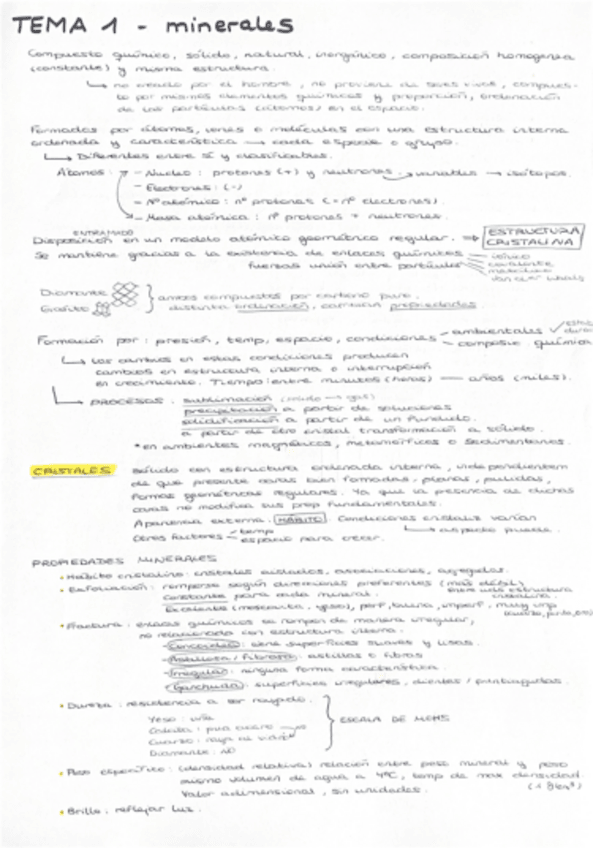 TEMA 1 - minerales
Compuesto químico, sólido, natural, inorgánico, composición homogénea
(constante) y misma estructura.
no creado por el hombre, no proviene de seres vivos, compues-
to por mismos elementos químicos y proporción, ordenación
de las partículas (átomos) en el espacio.
Formados por átomos, iones o moléculas con una estructura interna
ordenada y característica → cada especie o grupo.
Diferentes entre sí y clasificables.
Átomos: - Núcleo: protones (+) y neutrones → variables → isótopos.
- Electrones: (-)
- Nº atómico: nº protones (= nº electrones).
- Masa atómica: nº protones + neutrones.
ENTRAMADO
Disposición en un modelo atómico geométrico regular. ⇒ ESTRUCTURA CRISTALINA
Se mantiene gracias a la existencia de enlaces químicos - iónico
fuerzas unión entre partículas - covalente
metálico
van der Waals
Diamante
Grafito
ambos compuestos por carbono puro.
distinta ordenación, cambian propiedades
Formación por: presión, temp, espacio, condiciones - ambientales
- composic. química
Los cambios en estas condiciones producen
cambios en estructura interna o interrupción
en crecimiento. Tiempo: entre minutos (horas) — años (miles).
PROCESOS: sublimación (sólido → gas)
precipitación a partir de soluciones
solidificación a partir de un fundido.
a partir de otro cristal transformación a sólido.
* en ambientes magmáticos, metamórficos o sedimentarios.
CRISTALES Sólido con estructura ordenada interna, independientem
de que presente caras bien formadas, planas, pulidas,
formas geométricas regulares. Ya que la presencia de dichas
caras no modifica sus prop fundamentales.
Apariencia externa: HÁBITO: Condiciones cristaliz varían
Otros factores - temp
espacio para crecer.
aspecto puede.
PROPIEDADES MINERALES
• Hábito cristalino: cristales aislados, asociaciones, agregados.
• Exfoliación: romperse según direcciones preferentes (más débil)
entre una estructura
cristalina.
Constante para cada mineral.
Excelente (moscovita, yeso), perf, buena, imperf, muy imp
• Fractura: enlaces químicos se rompen de manera irregular,
no relacionada con estructura interna.
- Concoidea: tiene superficies suaves y lisas.
- Astillosa / fibrosa: astillas o fibras
- Irregular: ninguna forma característica.
- Ganchuda: superficies irregulares, dientes / puntiagudas.
• Dureza: resistencia a ser rayado.
Yeso: uña
Calcita: pua acero
Cuarzo: raya al vidrio
Diamante: NO
ESCALA DE MOHS
• Peso específico: (densidad relativa) relación entre peso mineral y peso
mismo volumen de agua a 4ºC, temp de max densidad.
Valor adimensional, sin unidades.
• Brillo: reflejar luz.